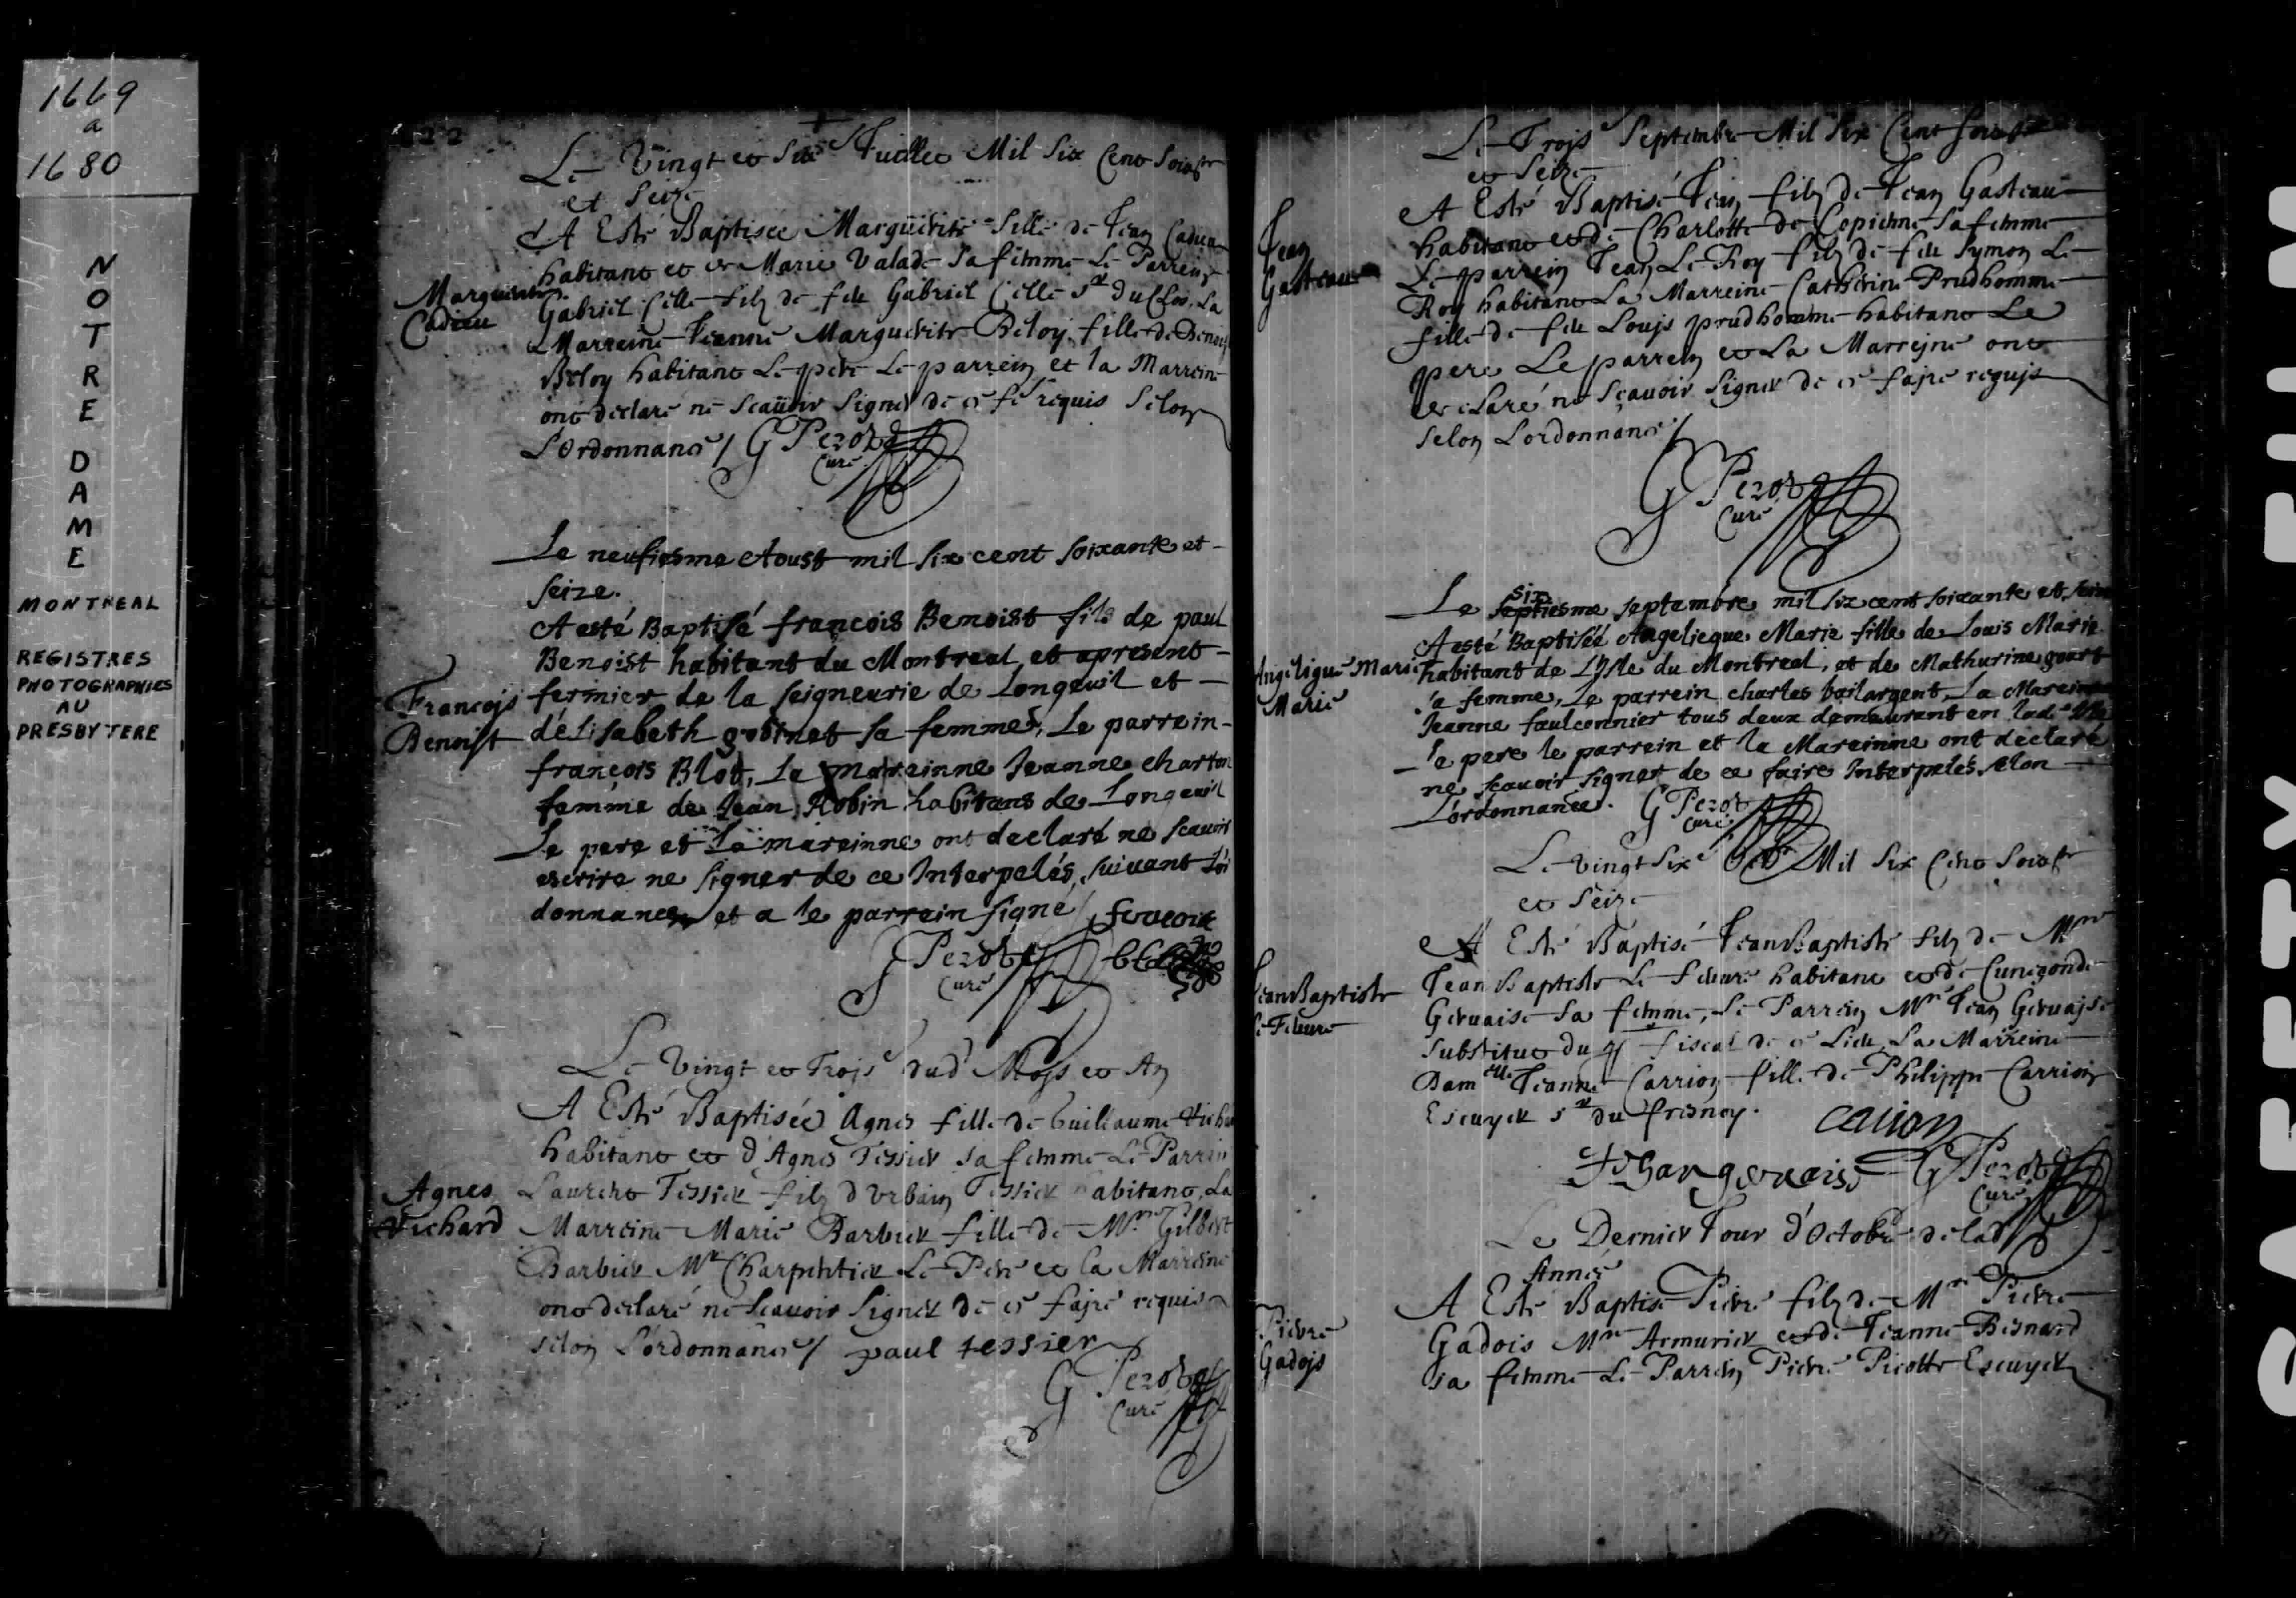 1669
a
1680
NOTRE DAME
MONTREAL
REGISTRES
PHOTOGRAPHIES
AU
PRESBYTERE
Le Vingt et Six Juillet Mil Six Cent Soixte
et Seize
A Esté Baptisée Marguérite fille de Jean Cadieu
habitant et de Marie Valade sa femme Le Parrein
Marguerite
Cadieu
Gabriel Celle filz de feu Gabriel Celle sr duClos. La
Marreine Jeanne Marguérite Béloy fille de Benoist
Beloy habitant Le pere Le parrein et la Marreine
ont déclaré ne Scauoir Signer de ce fe requis Selon
L'Ordonnance / G Perot
Curé
Le neufiesme Aoust mil six cent soixante et
seize.
A esté Baptisé françois Benoist fils de paul
Benoist habitant du Montreal, et apresent
François
Benoist
fermier de la seigneurie de Longeuil et
d'élisabeth gobinet sa femme, Le parrein
françois Blot, La mareinne Jeanne charton
femme de Jean Robin habitans de Longeuil
Le pere et La mareinne ont declaré ne scauoir
escrire ne signer de ce Interpelés, suivant Lor
donnance et a le parrein signé / francois
G Perot blot
Curé
Le Vingt et Trois dud Mois et An
A Esté Baptisée Agnes fille de Guillaume Vichard
habitant et d'Agnes Tessier sa femme Le Parrein
Agnes
Vichard
Laurent Tessier filz d'Urbain Tessier habitant, La
Marreine Marie Barbier fille de Mre Gilbert
Barbier Mr Charpentier Le Pere et la Marreine
ont déclaré ne Scauoir Signer de ce faire requis
selon L'ordonnance / paul tessier
G Perot
Curé
Le Trois Septembre Mil Six Cent Soixte
et Seize
A Esté Baptisé Jean filz de Jean Gasteau
Jean
Gasteau
habitant et de Charlotte de Copiehne sa femme
Le parrein Jean Le Roy filz de feu Symon Le
Roy habitant La Marreine Catherine Prudhomme
fille de feu Louys prudhomme habitant Le
pere Le parrein et La Marreyne ont
declaré ne Sçauoir Signer de ce faire requis
selon L'ordonnance /
G Perot
Curé
six
Le septiesme septembre mil six cent soixante et seize
A esté Baptisée Angelicque Marie fille de Louis Marie
Angelique Marie
Marie
habitant de L'Isle du Montreal, et de Mathurine gouart
sa femme, Le parrein charles bailargent, La Mareinne
Jeanne faulconnier tous deux demeurant en lad. Isle
le pere le parrein et la Mareinne ont declaré
ne scauoir signer de ce faire Interpelés selon
L'ordonnance. G Perot
Curé
Le vingt Sixe Octbre Mil Six Cent Soixte
et Seize
A Esté Baptisé Jean Baptiste filz de Mre
Jean Baptiste
Le Febure
Jean Baptiste Le Febure habitant et de Cunegonde
Geruaise sa femme, Le Parrein Mre Jean Geruaise
Substitut du pr fiscal de ce Lieu, La Marreine
Damelle Jeanne Carrion fille de Philippe Carrion
Escuyer sr du fresnoy. carion
Jehan geruaise G Perot
Curé
Le Dernier Jour d'Octobre de lad
Année
A Esté Baptisé Pierre filz de Mre Pierre
Pierre
Gadoys
Gadois Mre Armurier et de Jeanne Besnard
sa femme Le Parrein Pierre Picotte Escuyer
SAFETY FILM